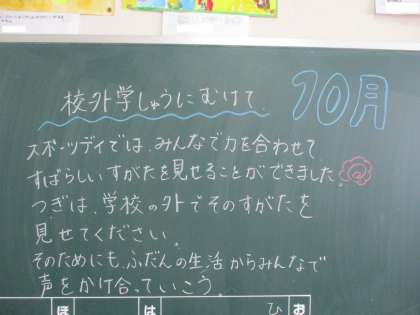 校外学しゅうにむけて
10月
スポーツデイでは、みんなで力を合わせて
すばらしいすがたを見せることができました。
つぎは、学校の外でそのすがたを
見せてください。
そのためにも、ふだんの生活からみんなで
声をかけ合っていこう。
ほ は ひ お